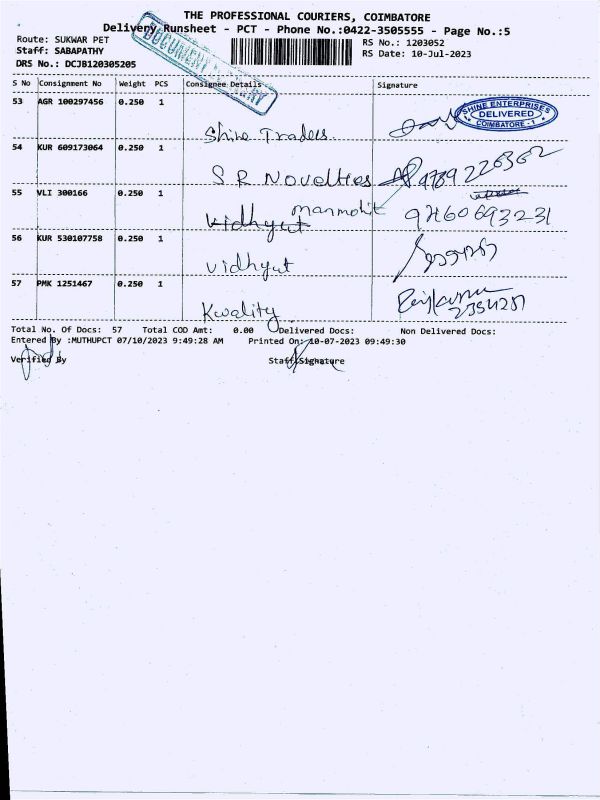 THE PROFESSIONAL COURIERS, COIMBATORE
Delivery Runsheet - PCT - Phone No.:0422-3505555 - Page No.:5
Route: SUKWAR PET
RS No.: 1203052
Staff: SABAPATHY
RS Date: 10-Jul-2023
DRS No.: DCJB120305205
DOCUMENT
S No Consignment No Weight PCS Consignee Details Signature
53 AGR 100297456 0.250 1
SHINE ENTERPRISES
DELIVERED
COIMBATORE - 1
Shine Traders
54 KUR 609173064 0.250 1
S R Novelties
55 VLI 300166 0.250 1
manmohit
Vidhyut
56 KUR 530107758 0.250 1
Vidhyut
57 PMK 1251467 0.250 1
Kwality
Total No. Of Docs: 57 Total COD Amt: 0.00 Delivered Docs: Non Delivered Docs:
Entered By :MUTHUPCT 07/10/2023 9:49:28 AM Printed On: 10-07-2023 09:49:30
Verified By Staff Signature